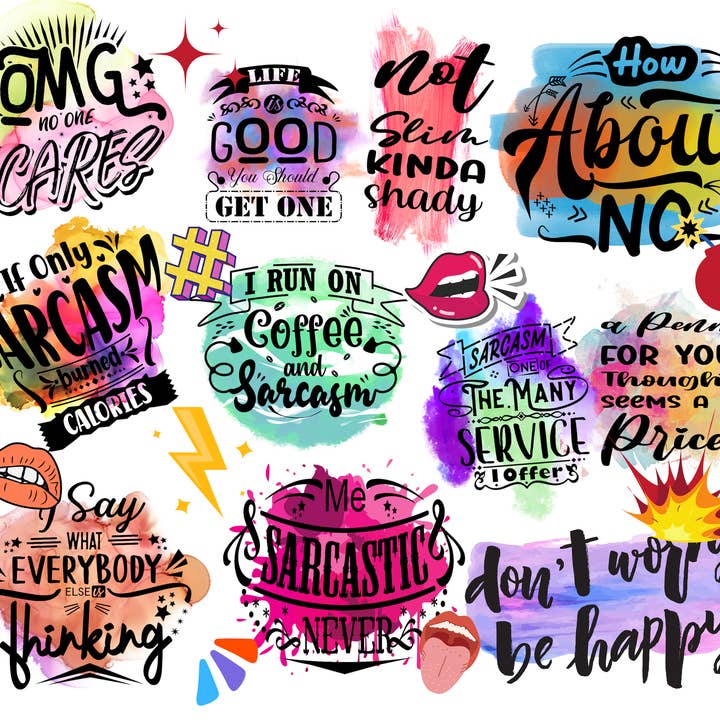 OMG
NO ONE
CARES
LIFE
is
GOOD
You Should
GET ONE
not
Slim
KINDA
shady
How
Abou
NO
If Only
SARCASM
burned
CALORIES
#
I RUN ON
Coffee
and
Sarcasm
SARCASM
ONE OF
THE MANY
SERVICE
I Offer
a Penn
FOR YOU
Though
SEEMS A
Price
I Say
WHAT
EVERYBODY
ELSE is
thinking
Me
SARCASTIC
NEVER
don't worry
be happy